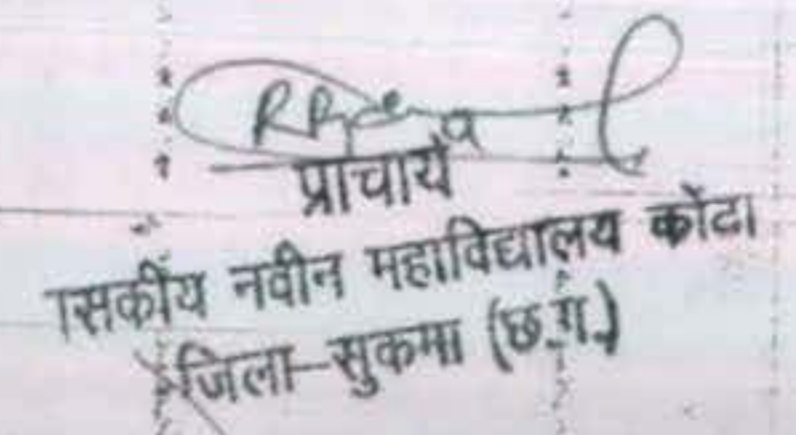 प्राचार्य
ासकीय नवीन महाविद्यालय कोंटा
जिला-सुकमा (छ.ग.)